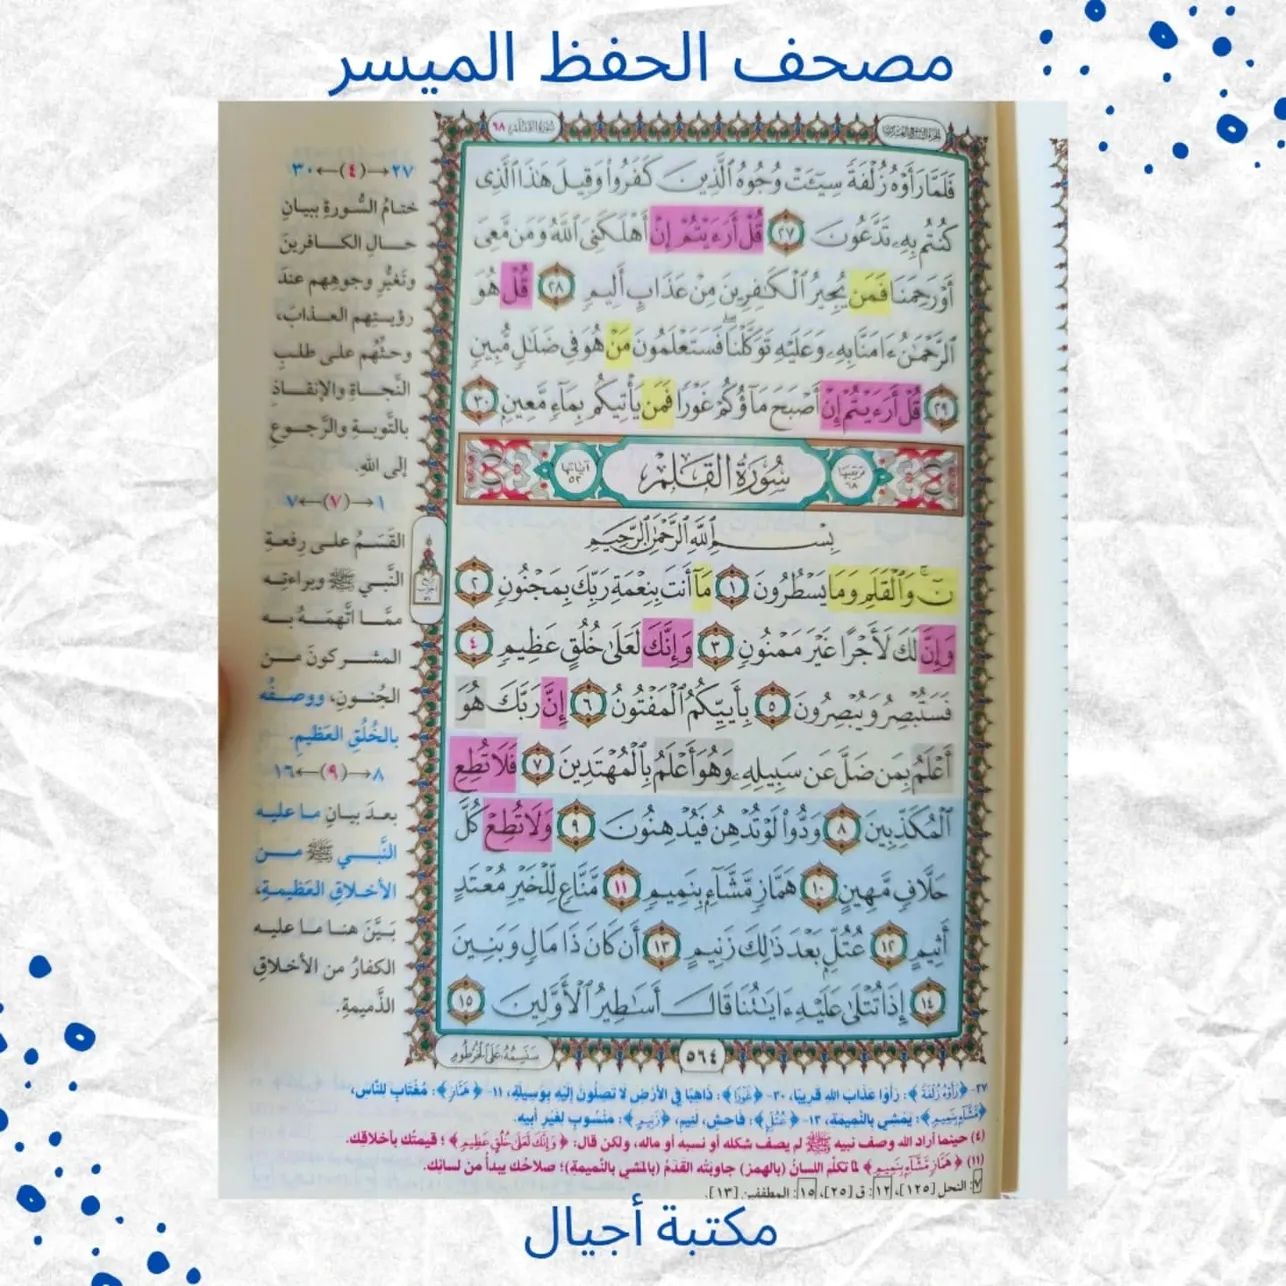 مصحف الحفظ الميسر
سُورَةُ القَلَم ٦٨
فَلَمَّا رَأَوْهُ زُلْفَةً سِيٓـَٔتْ وُجُوهُ ٱلَّذِينَ كَفَرُوا۟ وَقِيلَ هَٰذَا ٱلَّذِى
كُنتُم بِهِۦ تَدَّعُونَ ٢٧ قُلْ أَرَءَيْتُمْ إِنْ أَهْلَكَنِىَ ٱللَّهُ وَمَن مَّعِىَ
أَوْ رَحِمَنَا فَمَن يُجِيرُ ٱلْكَٰفِرِينَ مِنْ عَذَابٍ أَلِيمٍ ٢٨ قُلْ هُوَ
ٱلرَّحْمَٰنُ ءَامَنَّا بِهِۦ وَعَلَيْهِ تَوَكَّلْنَا ۖ فَسَتَعْلَمُونَ مَنْ هُوَ فِى ضَلَٰلٍ مُّبِينٍ
٢٩ قُلْ أَرَءَيْتُمْ إِنْ أَصْبَحَ مَآؤُكُمْ غَوْرًا فَمَن يَأْتِيكُم بِمَآءٍ مَّعِينٍ ٣٠
ترتيبها ٦٨ سُورَةُ القَلَمِ آياتها ٥٢
بِسْمِ ٱللَّهِ ٱلرَّحْمَٰنِ ٱلرَّحِيمِ
نٓ ۚ وَٱلْقَلَمِ وَمَا يَسْطُرُونَ ١ مَآ أَنتَ بِنِعْمَةِ رَبِّكَ بِمَجْنُونٍ ٢
وَإِنَّ لَكَ لَأَجْرًا غَيْرَ مَمْنُونٍ ٣ وَإِنَّكَ لَعَلَىٰ خُلُقٍ عَظِيمٍ ٤
فَسَتُبْصِرُ وَيُبْصِرُونَ ٥ بِأَييِّكُمُ ٱلْمَفْتُونُ ٦ إِنَّ رَبَّكَ هُوَ
أَعْلَمُ بِمَن ضَلَّ عَن سَبِيلِهِۦ وَهُوَ أَعْلَمُ بِٱلْمُهْتَدِينَ ٧ فَلَا تُطِعِ
ٱلْمُكَذِّبِينَ ٨ وَدُّوا۟ لَوْ تُدْهِنُ فَيُدْهِنُونَ ٩ وَلَا تُطِعْ كُلَّ
حَلَّافٍ مَّهِينٍ ١٠ هَمَّازٍ مَّشَّآءٍۭ بِنَمِيمٍ ١١ مَّنَّاعٍ لِّلْخَيْرِ مُعْتَدٍ
أَثِيمٍ ١٢ عُتُلٍّۭ بَعْدَ ذَٰلِكَ زَنِيمٍ ١٣ أَن كَانَ ذَا مَالٍ وَبَنِينَ
١٤ إِذَا تُتْلَىٰ عَلَيْهِ ءَايَٰتُنَا قَالَ أَسَٰطِيرُ ٱلْأَوَّلِينَ ١٥
٥٦٤
سَنَسِمُهُ عَلَى الْخُرْطُومِ
٢٧→(٤)←٣٠
ختامُ السُّورةِ ببيانِ
حالِ الكافرينَ
وتغيُّرِ وجوهِهم عندَ
رؤيتِهم العذابَ،
وحثِّهم على طلبِ
النَّجاةِ والإنقاذِ
بالتَّوبةِ والرُّجوعِ
إلى اللهِ.
١→(٧)←٧
القَسَمُ على رِفعةِ
النَّبي ﷺ وبراءتِه
ممَّا اتَّهمَهُ به
المشركونَ من
الجُنونِ، ووصفُه
بالخُلُقِ العَظيمِ.
٨→(٩)←١٦
بعدَ بيانِ ما عليه
النَّبي ﷺ من
الأخلاقِ العَظيمةِ،
بيَّنَ هنا ما عليه
الكفارُ من الأخلاقِ
الذَّميمةِ.
٢٧- ﴿رَأَوْهُ زُلْفَةً﴾: رَأَوْا عَذَابَ اللهِ قَرِيبًا، ٣٠- ﴿غَوْرًا﴾: ذَاهِبًا فِي الأَرْضِ لَا تَصِلُونَ إِلَيْهِ بِوَسِيلَةٍ، ١١- ﴿هَمَّازٍ﴾: مُغْتَابٍ لِلنَّاسِ،
﴿مَّشَّاءٍ بِنَمِيمٍ﴾: يَمْشِي بِالنَّمِيمَةِ، ١٣- ﴿عُتُلٍّ﴾: فَاحِشٍ، لَئِيمٍ، ﴿زَنِيمٍ﴾: مَنْسُوبٍ لِغَيْرِ أَبِيهِ.
(٤) حينما أراد الله وصف نبيه ﷺ لم يصف شكله أو نسبه أو ماله، ولكن قال: ﴿وَإِنَّكَ لَعَلَى خُلُقٍ عَظِيمٍ﴾؛ قيمتُك بأخلاقك.
(١١) ﴿هَمَّازٍ مَّشَّاءٍ بِنَمِيمٍ﴾ لمَّا تكلَّم اللسانُ (بالهمز) جاوبته القدَمُ (بالمشي بالنَّميمة)؛ صلاحُك يبدأ من لسانك.
٧: النحل [١٢٥]، ١٢: ق [٢٥]، ١٥: المطففين [١٣].
مكتبة أجيال